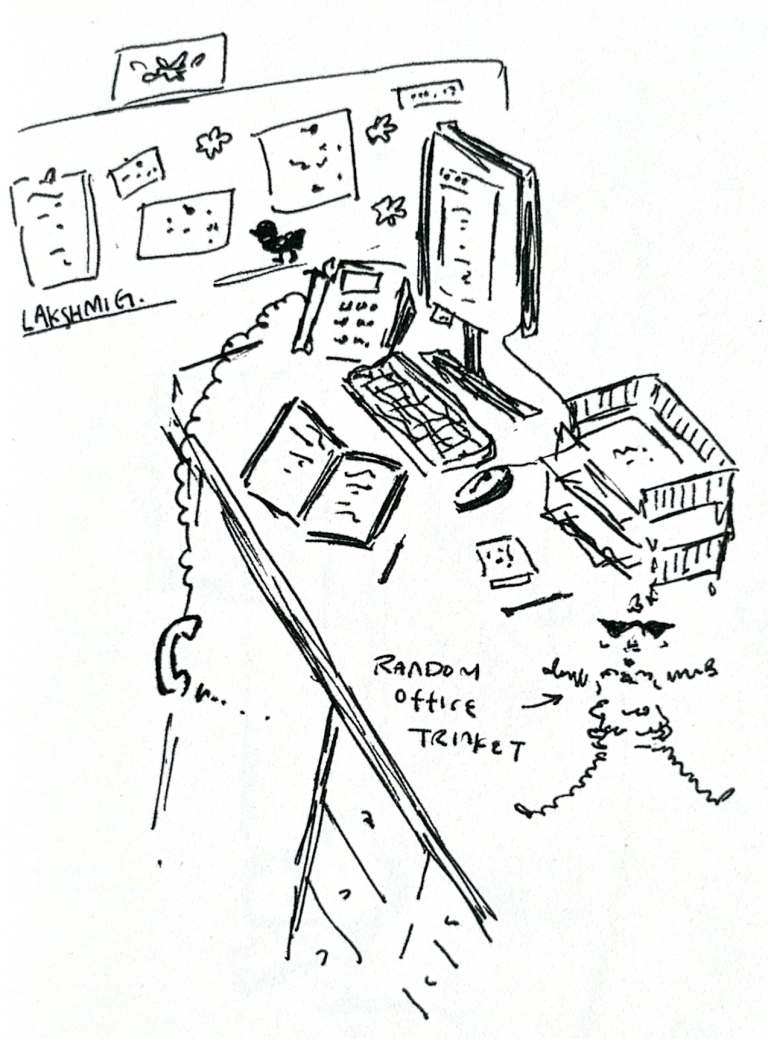 LAKSHMI G.
RANDOM
OFFICE
TRINKET